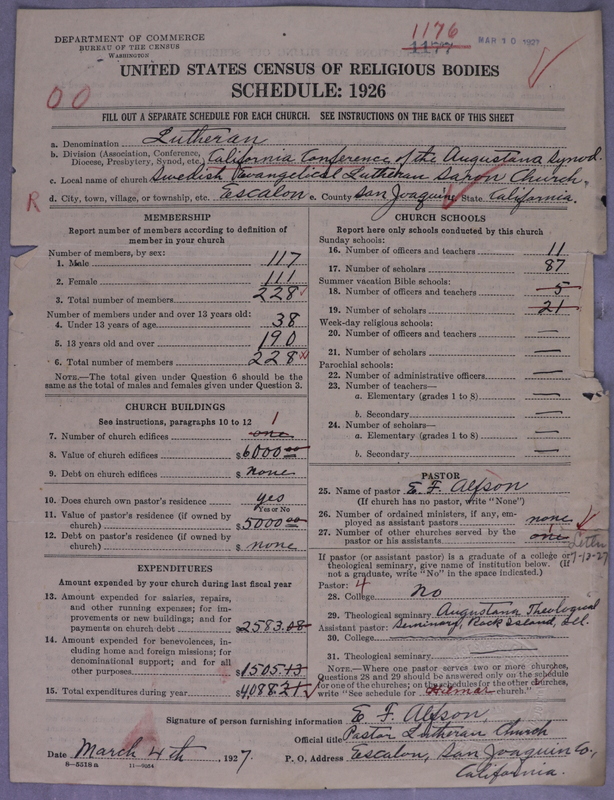 1176
1177
MAR 10 1927
DEPARTMENT OF COMMERCE
BUREAU OF THE CENSUS
WASHINGTON
UNITED STATES CENSUS OF RELIGIOUS BODIES
SCHEDULE: 1926
00
FILL OUT A SEPARATE SCHEDULE FOR EACH CHURCH. SEE INSTRUCTIONS ON THE BACK OF THIS SHEET
a. Denomination Lutheran
b. Division (Association, Conference, Diocese, Presbytery, Synod, etc.) California Conference of the Augustana Synod.
c. Local name of church Swedish Evangelical Lutheran Saron Church.
R
d. City, town, village, or township, etc. Escalon e. County San Joaquin State California.
MEMBERSHIP
Report number of members according to definition of
member in your church
Number of members, by sex:
1. Male 117
2. Female 111
3. Total number of members 228
Number of members under and over 13 years old:
4. Under 13 years of age 38
5. 13 years old and over 190
6. Total number of members 228
NOTE.—The total given under Question 6 should be the
same as the total of males and females given under Question 3.
CHURCH BUILDINGS
See instructions, paragraphs 10 to 12
7. Number of church edifices one 1
8. Value of church edifices $6000.00
9. Debt on church edifices $ none
10. Does church own pastor's residence yes
Yes or No
11. Value of pastor's residence (if owned by
church) $5000.00
12. Debt on pastor's residence (if owned by
church) $ none
EXPENDITURES
Amount expended by your church during last fiscal year
13. Amount expended for salaries, repairs,
and other running expenses; for im-
provements or new buildings; and for
payments on church debt 2583.08
14. Amount expended for benevolences, in-
cluding home and foreign missions; for
denominational support; and for all
other purposes 1505.13
15. Total expenditures during year $4088.21
CHURCH SCHOOLS
Report here only schools conducted by this church
Sunday schools:
16. Number of officers and teachers 11
17. Number of scholars 87
Summer vacation Bible schools:
18. Number of officers and teachers 5
19. Number of scholars 21
Week-day religious schools:
20. Number of officers and teachers —
21. Number of scholars —
Parochial schools:
22. Number of administrative officers —
23. Number of teachers—
a. Elementary (grades 1 to 8) —
b. Secondary —
24. Number of scholars—
a. Elementary (grades 1 to 8) —
b. Secondary —
PASTOR
25. Name of pastor E. F. Alfson
(If church has no pastor, write "None")
26. Number of ordained ministers, if any, em-
ployed as assistant pastors none
27. Number of other churches served by the
pastor or his assistants one
7-13-27
If pastor (or assistant pastor) is a graduate of a college or
theological seminary, give name of institution below. (If
not a graduate, write "No" in the space indicated.)
Pastor: 4
28. College No
29. Theological seminary Augustana Theological
Assistant pastor: Seminary, Rock Island, Ill.
30. College
31. Theological seminary
NOTE.—Where one pastor serves two or more churches,
Questions 28 and 29 should be answered only on the schedule
for one of the churches; on the schedules for the other churches,
write "See schedule for Hilmar church."
Signature of person furnishing information E. F. Alfson,
Official title Pastor Lutheran Church
Date March 4th, 1927. P. O. Address Escalon, San Joaquin Co.,
California.
8-5518 a 11-9054